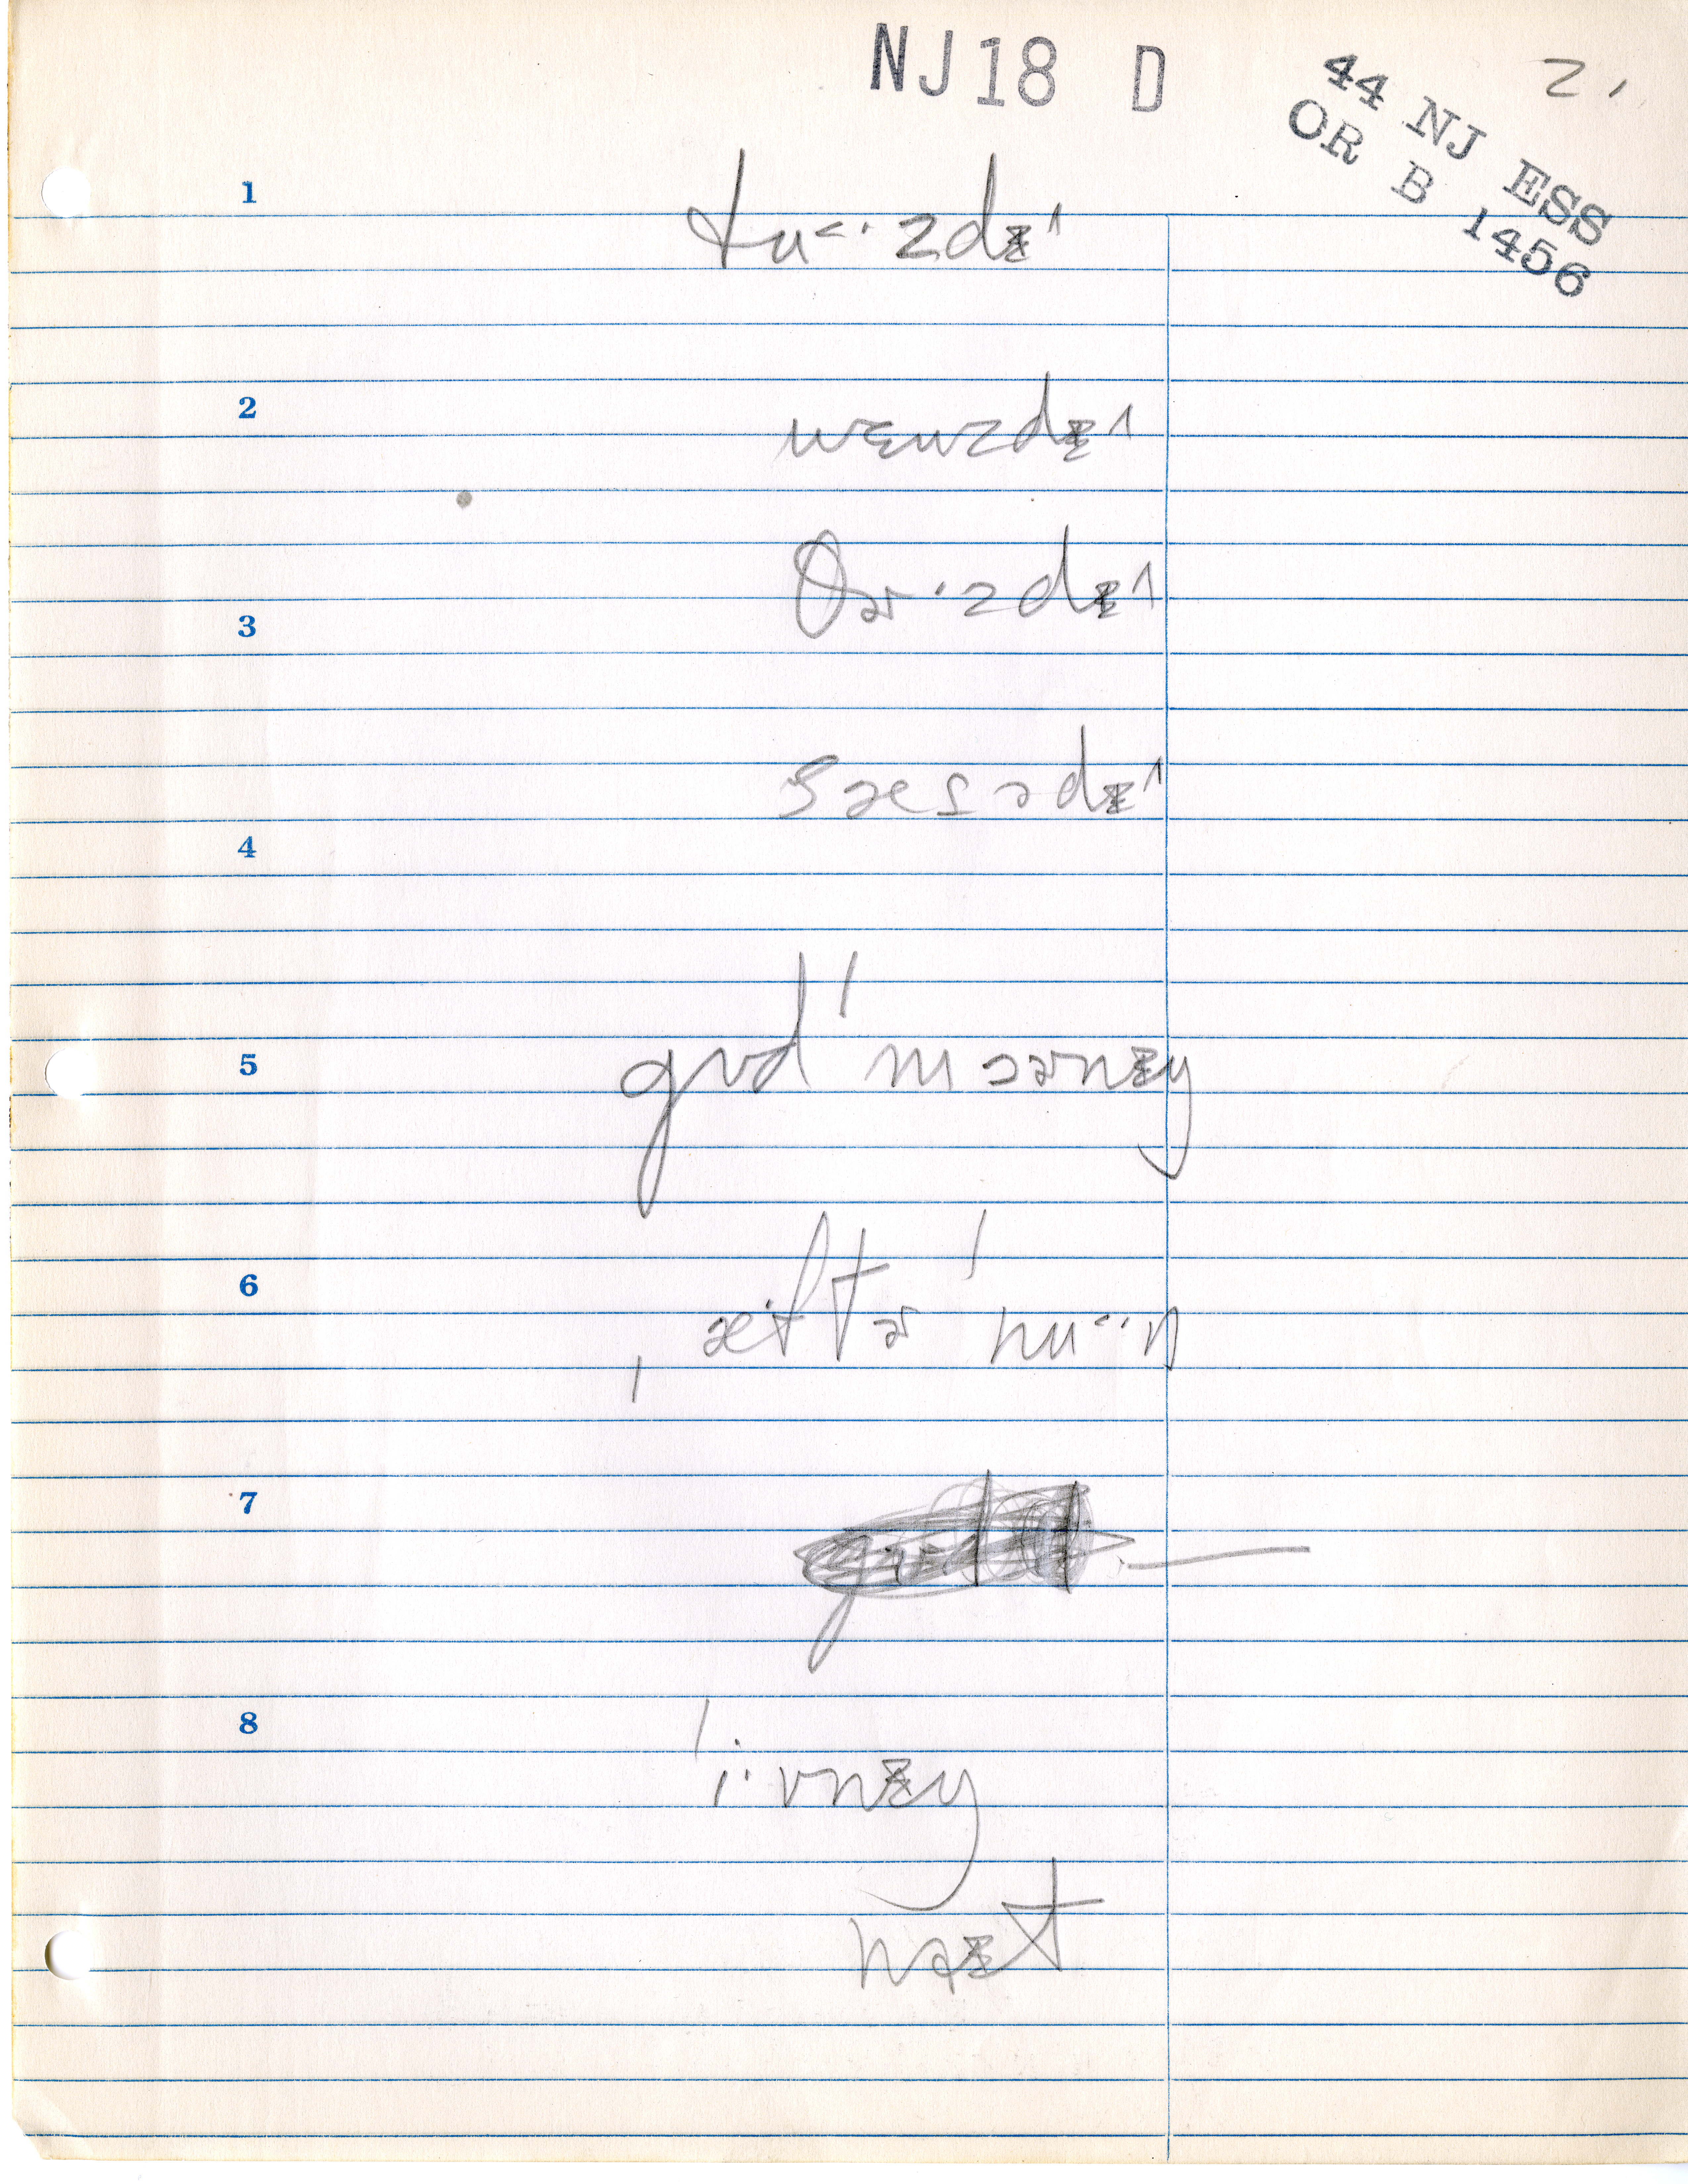 NJ18 D
44 NJ ESS
OR B 1456
2.
1
tu<·zdɪ^
2
wɛnzdɪ^
θɚ·zdɪ^
3
sæsədɪ^
4
5
gʊd ˈmɔɚnɪŋ
6
ˌæftɚ ˈnu<·n
7
8
ˈi·vnɪŋ
naɪt